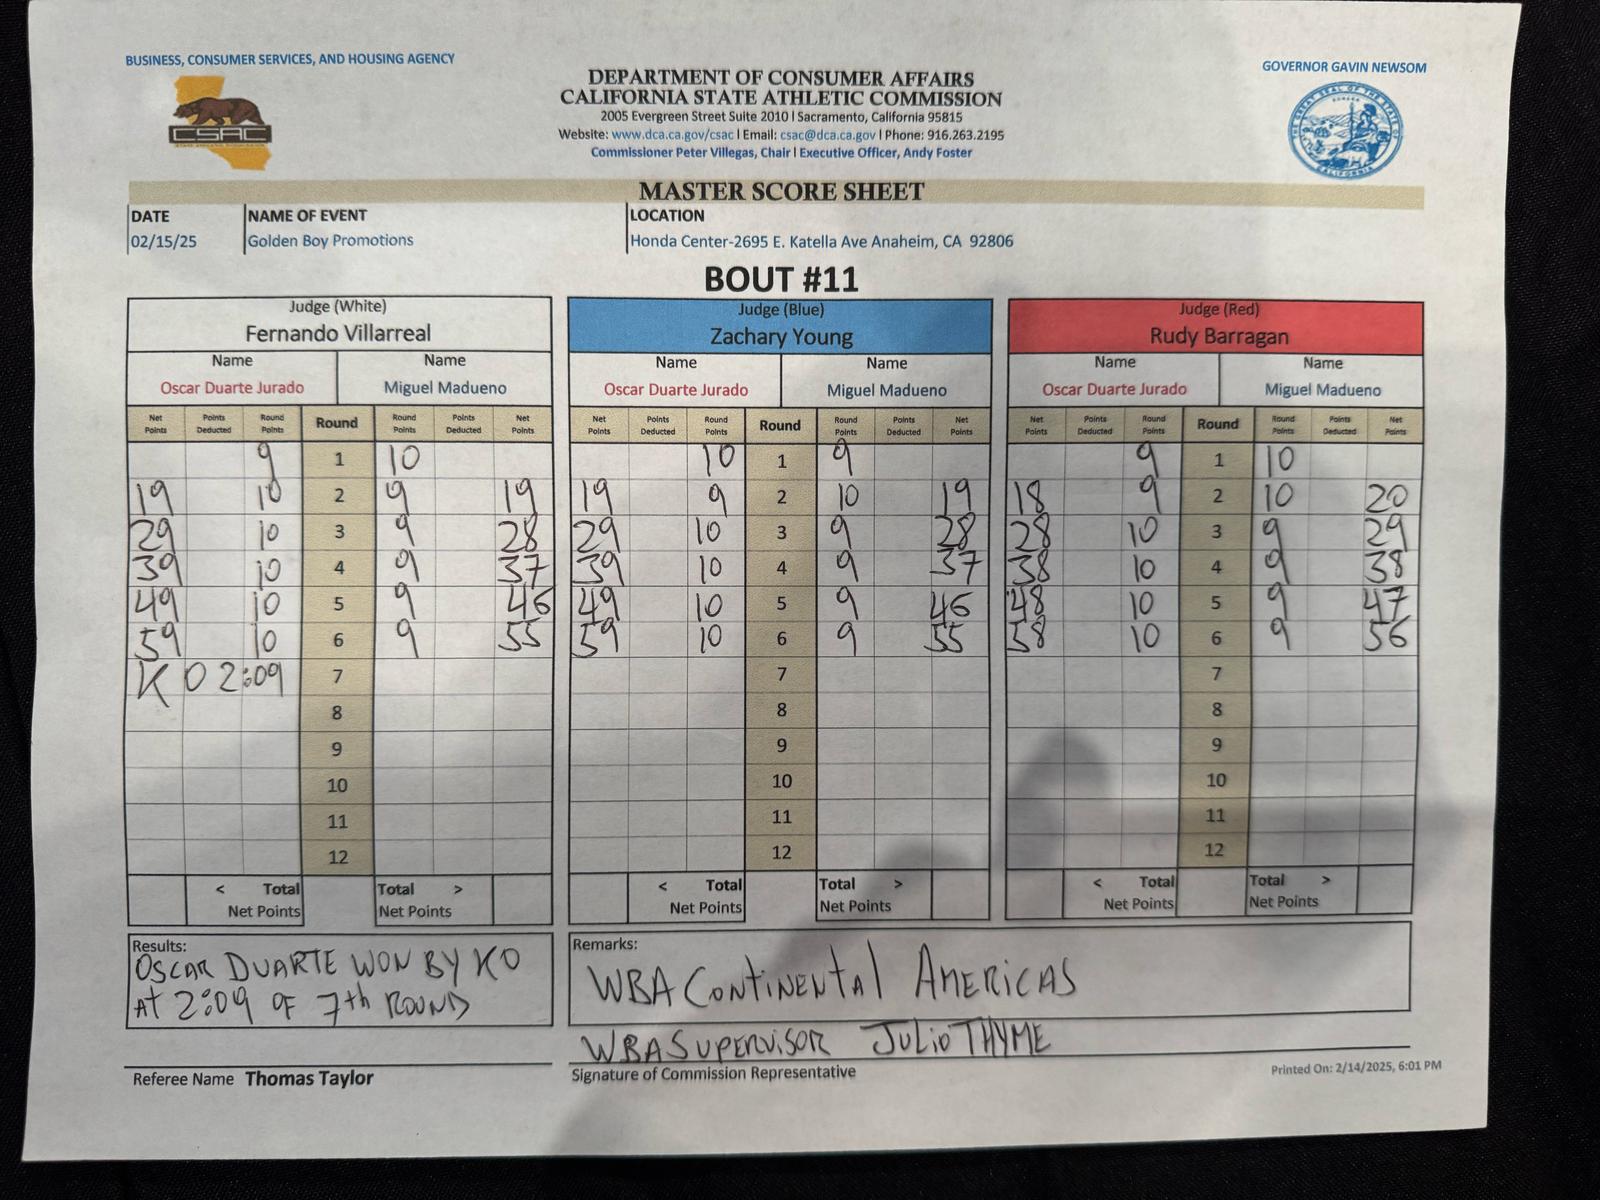 BUSINESS, CONSUMER SERVICES, AND HOUSING AGENCY
GOVERNOR GAVIN NEWSOM
CSAC
DEPARTMENT OF CONSUMER AFFAIRS
CALIFORNIA STATE ATHLETIC COMMISSION
2005 Evergreen Street Suite 2010 | Sacramento, California 95815
Website: www.dca.ca.gov/csac | Email: csac@dca.ca.gov | Phone: 916.263.2195
Commissioner Peter Villegas, Chair | Executive Officer, Andy Foster
MASTER SCORE SHEET
DATE NAME OF EVENT LOCATION
02/15/25 Golden Boy Promotions Honda Center-2695 E. Katella Ave Anaheim, CA 92806
BOUT #11
Judge (White) Judge (Blue) Judge (Red)
Fernando Villarreal Zachary Young Rudy Barragan
Name Name Name Name Name Name
Oscar Duarte Jurado Miguel Madueno Oscar Duarte Jurado Miguel Madueno Oscar Duarte Jurado Miguel Madueno
Net Points Points Deducted Round Points Round Round Points Points Deducted Net Points Net Points Points Deducted Round Points Round Round Points Points Deducted Net Points Net Points Points Deducted Round Points Round Round Points Points Deducted Net Points
9 1 10 10 1 9 9 1 10
19 10 2 9 19 19 9 2 10 19 18 9 2 10 20
29 10 3 9 28 29 10 3 9 28 28 10 3 9 29
39 10 4 9 37 39 10 4 9 37 38 10 4 9 38
49 10 5 9 46 49 10 5 9 46 48 10 5 9 47
59 10 6 9 55 59 10 6 9 55 58 10 6 9 56
KO 2:09 7 7 7
8 8 8
9 9 9
10 10 10
11 11 11
12 12 12
< Total Total > < Total Total > < Total Total >
Net Points Net Points Net Points Net Points Net Points Net Points
Results:
OSCAR DUARTE WON BY KO
AT 2:09 OF 7th ROUND
Remarks:
WBA CONTINENTAL AMERICAS
WBA SUPERVISOR JULIO THYME
Referee Name Thomas Taylor
Signature of Commission Representative
Printed On: 2/14/2025, 6:01 PM